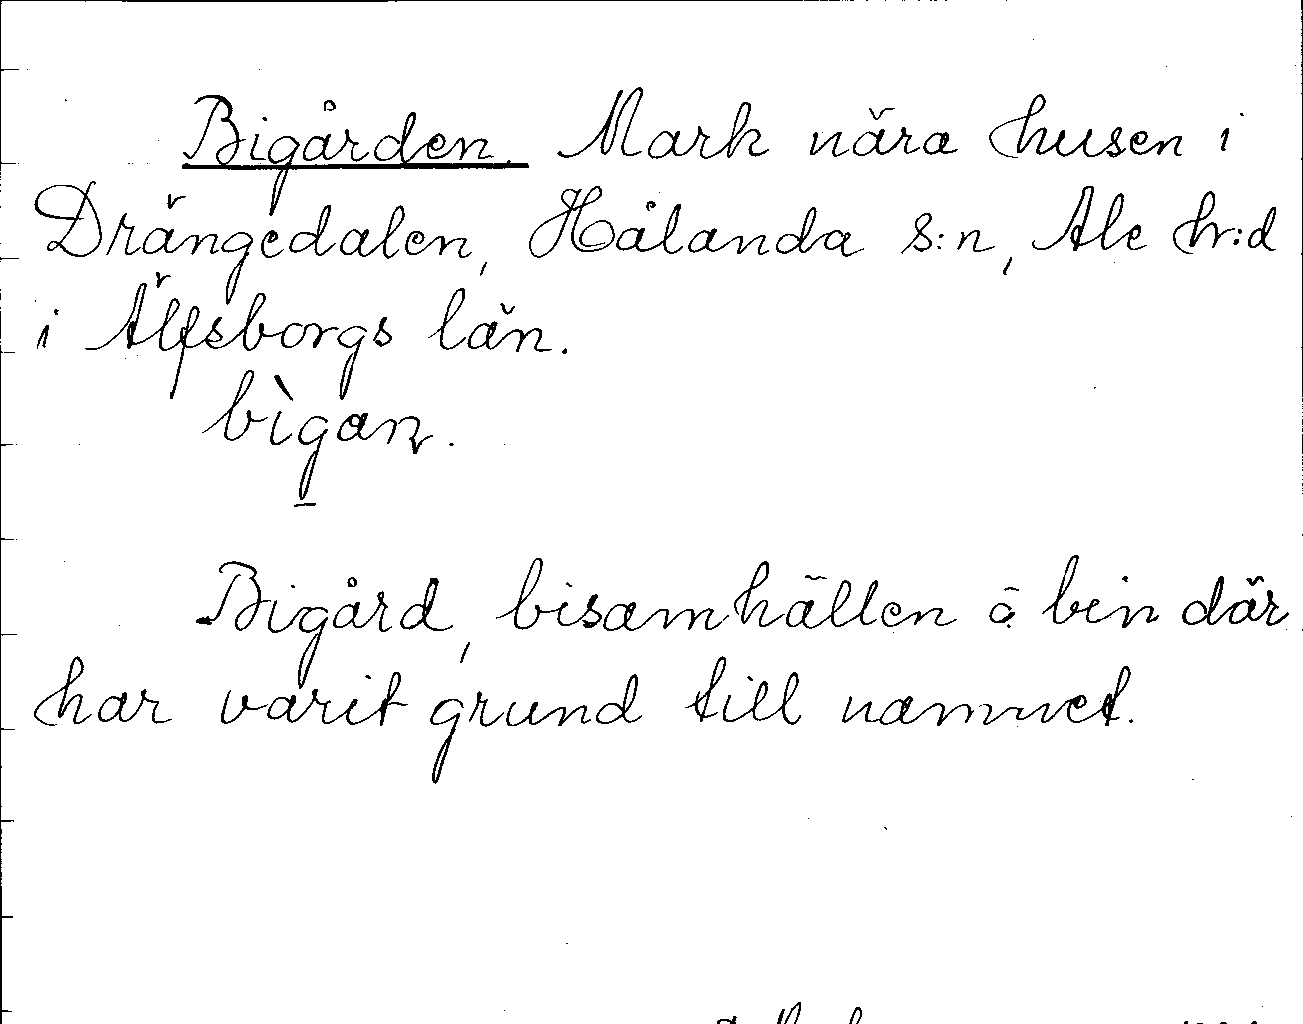 Bigården. Mark nära husen i
Drängedalen, Hålanda s:n, Ale hr:d
i Älfsborgs län.
bìgan.
Bigård, bisamhällen å bin där
har varit grund till namnet.